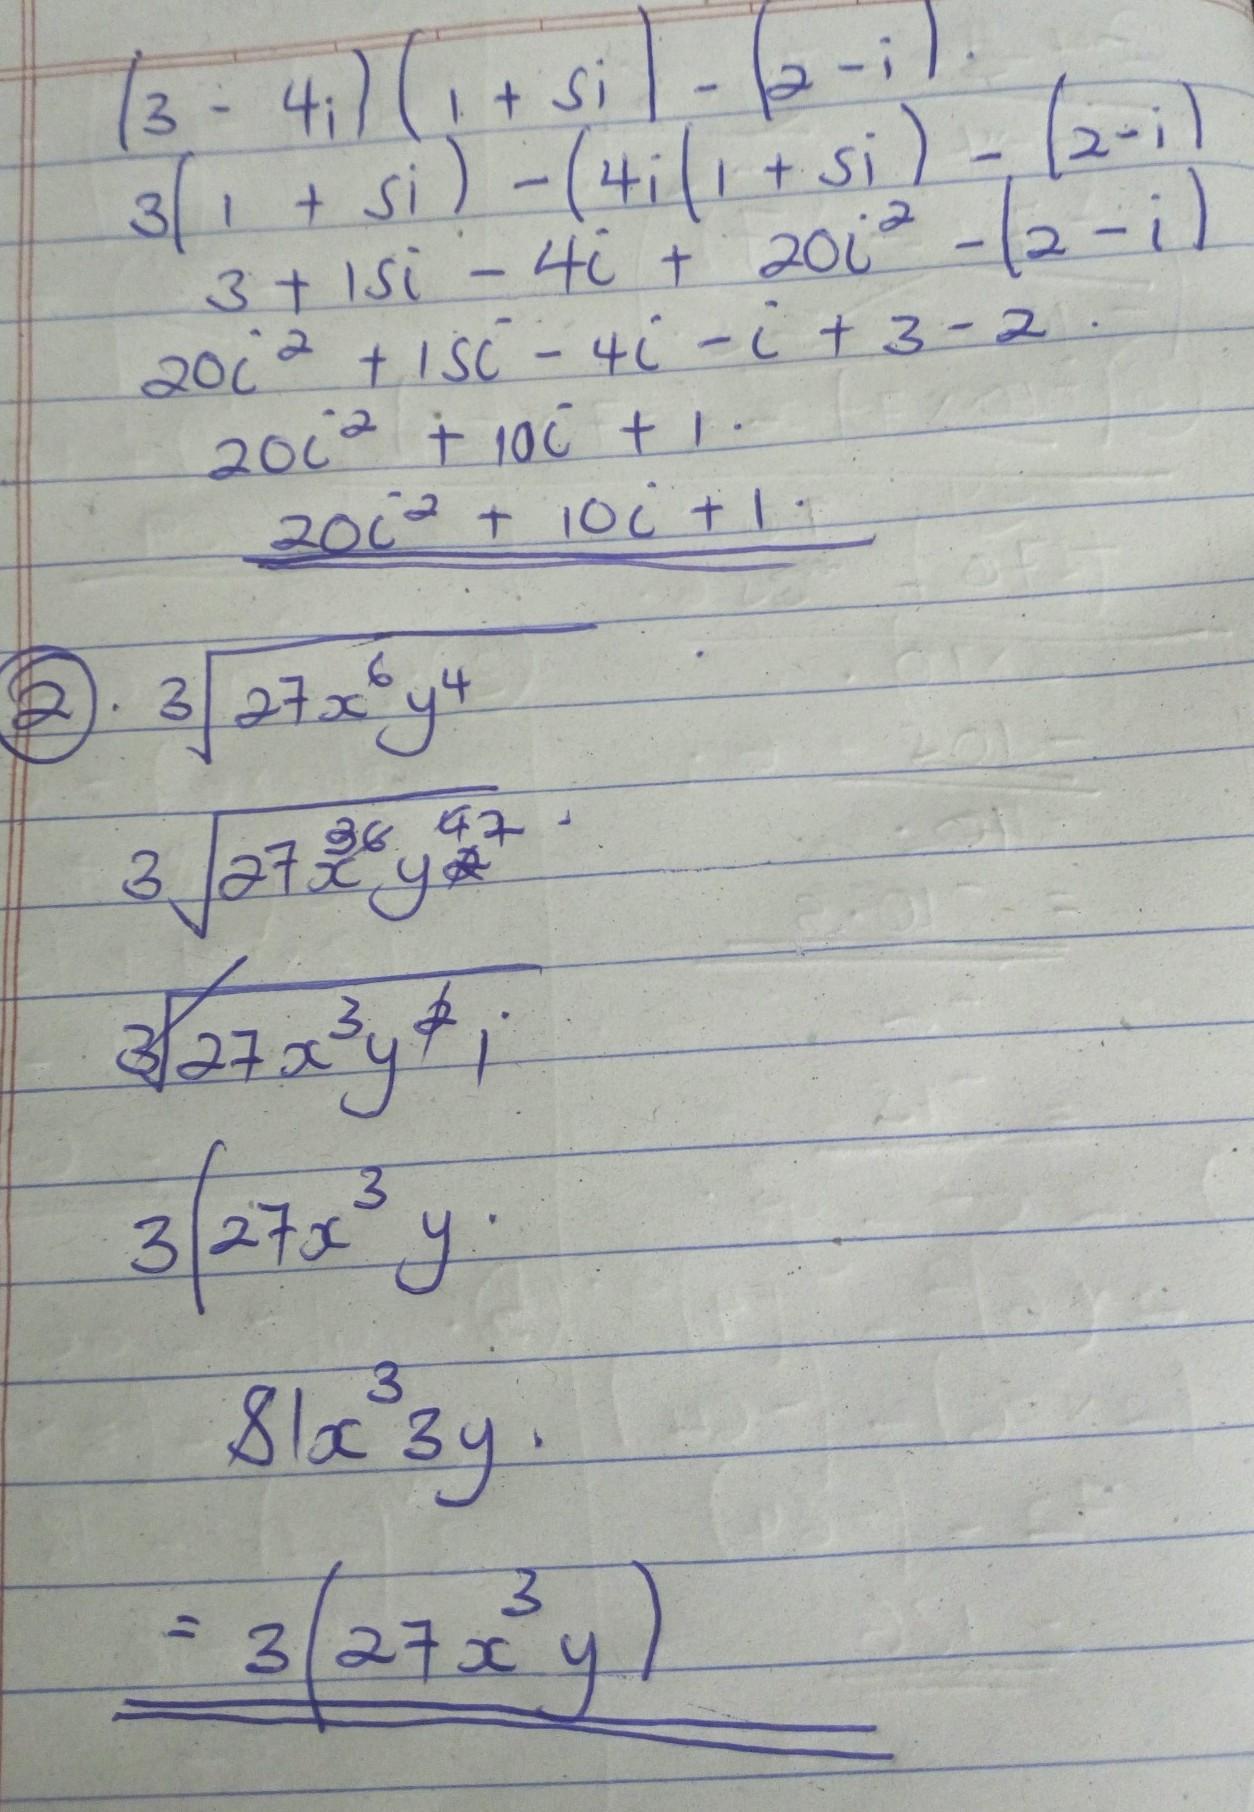 (3 - 4i) (1 + 5i) - (2 - i).
3(1 + 5i) - (4i(1 + 5i) - (2-i)
3 + 15i - 4i + 20i² - (2 - i)
20i² + 15i - 4i - i + 3 - 2.
20i² + 10i + 1.
20i² + 10i + 1.
2. 3√27x⁶y⁴
3√27x³⁶y⁴²
3√27x³y²1
3(27x³y.
81x³3y.
= 3(27x³y)